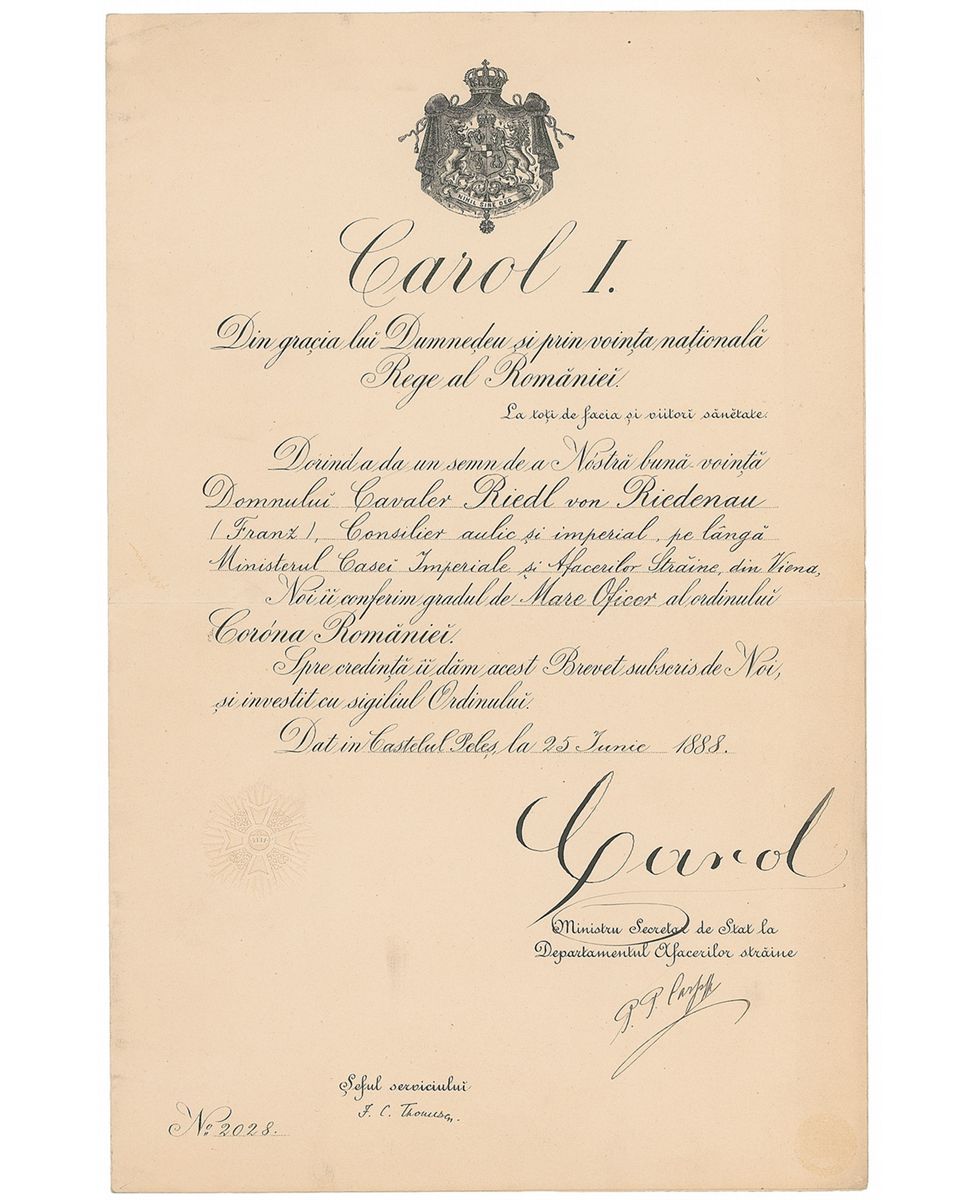 NIHIL SINE DEO
Carol I.
Din graçia lui Dumneḑeu și prin voința națională
Rege al Românieĭ.
La toți de facia și viitori sănĕtate.
Dorind a da un semn de a Nóstră bună-voință
Domnuluĭ Cavaler Riedl von Riedenau
(Franz), Consilier aulic și imperial, pe lângă
Ministerul Casei Imperiale și Afacerilor Străine, din Viena,
Noi ii conferim gradul de Mare Oficer al ordinuluĭ
Coróna Românieĭ.
Spre credință ĭĭ dăm acest Brevet subscris de Noi,
și investit cu sigiliul Ordinuluĭ.
Dat in Castelul Peleș, la 25 Iunie 1888.
Carol
Ministru Secretar de Stat la
Departamentul Afacerilor străine
P. P. Carp
Șeful serviciuluĭ
No 2028.